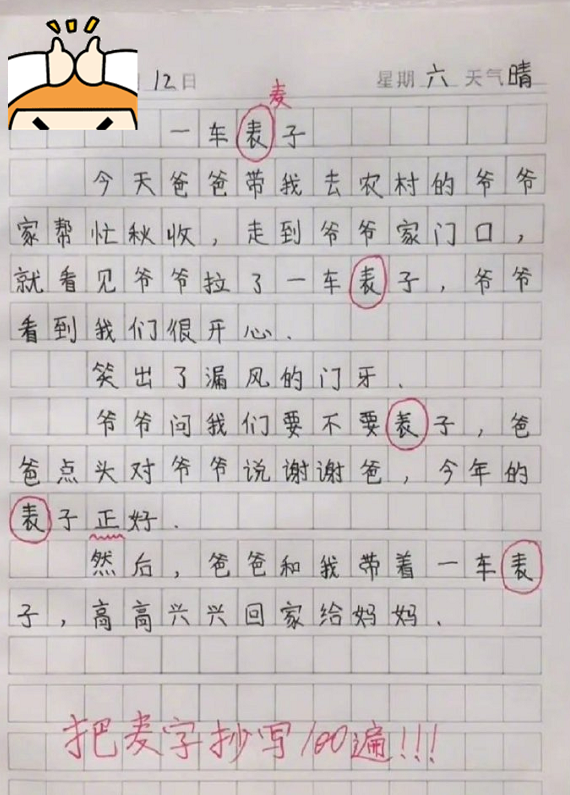 12日 星期六 天气晴
麦
一车表子
今天爸爸带我去农村的爷爷
家帮忙秋收，走到爷爷家门口，
就看见爷爷拉了一车表子，爷爷
看到我们很开心.
笑出了漏风的门牙.
爷爷问我们要不要表子，爸
爸点头对爷爷说谢谢爸，今年的
表子正好.
然后，爸爸和我带着一车表
子，高高兴兴回家给妈妈.
把麦字抄写100遍!!!